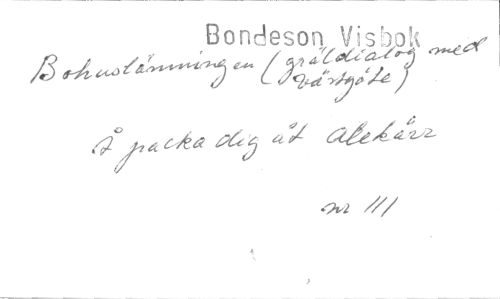 Bondeson Visbok
Bohuslänningen (gräldialog med
västgöte)
Å packa dig åt Alekärr
nr 111